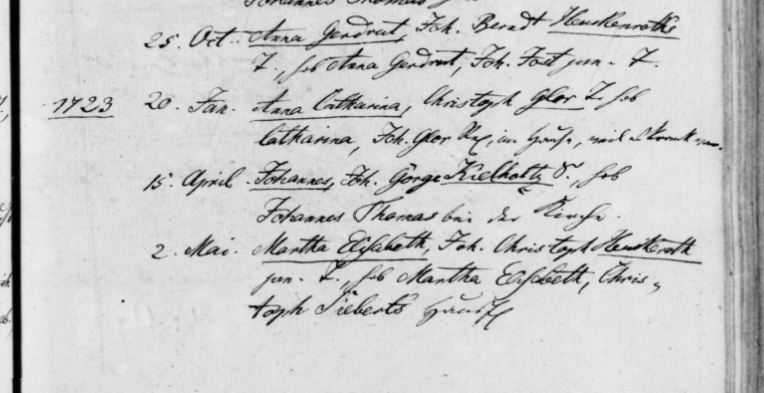 Johannes Thomas
25. Oct. Anna Gerdrut, Joh. Berndt Heuskenroths
T., hob Anna Gerdrut, Joh. Jost jun. T.
1723 20. Jan. Anna Catharina, Christoph Glor T. hob
Catharina, Joh. Glor im Hause, weil es krank war.
15. April. Johannes, Joh. Görge Kielholtz S., hob
Johannes Thomas bei der Kirche.
2. Mai. Martha Elisabeth, Joh. Christoph Heuskenroth
jun. T., hob Martha Elisabeth, Chris-
toph Sieberts